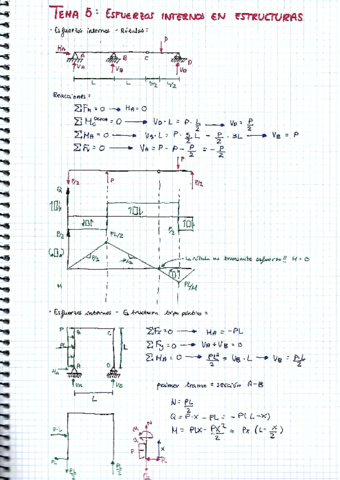 TEMA 5: ESFUERZOS INTERNOS EN ESTRUCTURAS
- Esfuerzos internos - Rótulas:
P
HA
A B C D
VA VB VD
L L L/2 L/2
Reacciones:
ΣFx = 0 → HA = 0
→ VD = P/2
ΣMA = 0 → VB · L = → VB = P
ΣFy = 0 → VA = P - P - P/2 = - P/2
P
P/2 P P/2
Q
P/2 P/2
PL/2
La rótula no transmite esfuerzo!! M = 0
M
PL/4
- Esfuerzos internos - Estructura tipo pórtico:
P B C
L
HA A D
VA VD
L
ΣFx = 0 → HA = -PL
ΣFy = 0 → VA + VD = 0
ΣMA = 0 → PL²/2 = VD · L → VD = PL/2
primer tramo = sección A-B
N = PL/2
Q = P·x - PL = -P(L-x)
M = PLx - Px²/2 = Px (L - x/2)
P·L
PL
PL/2 PL/2